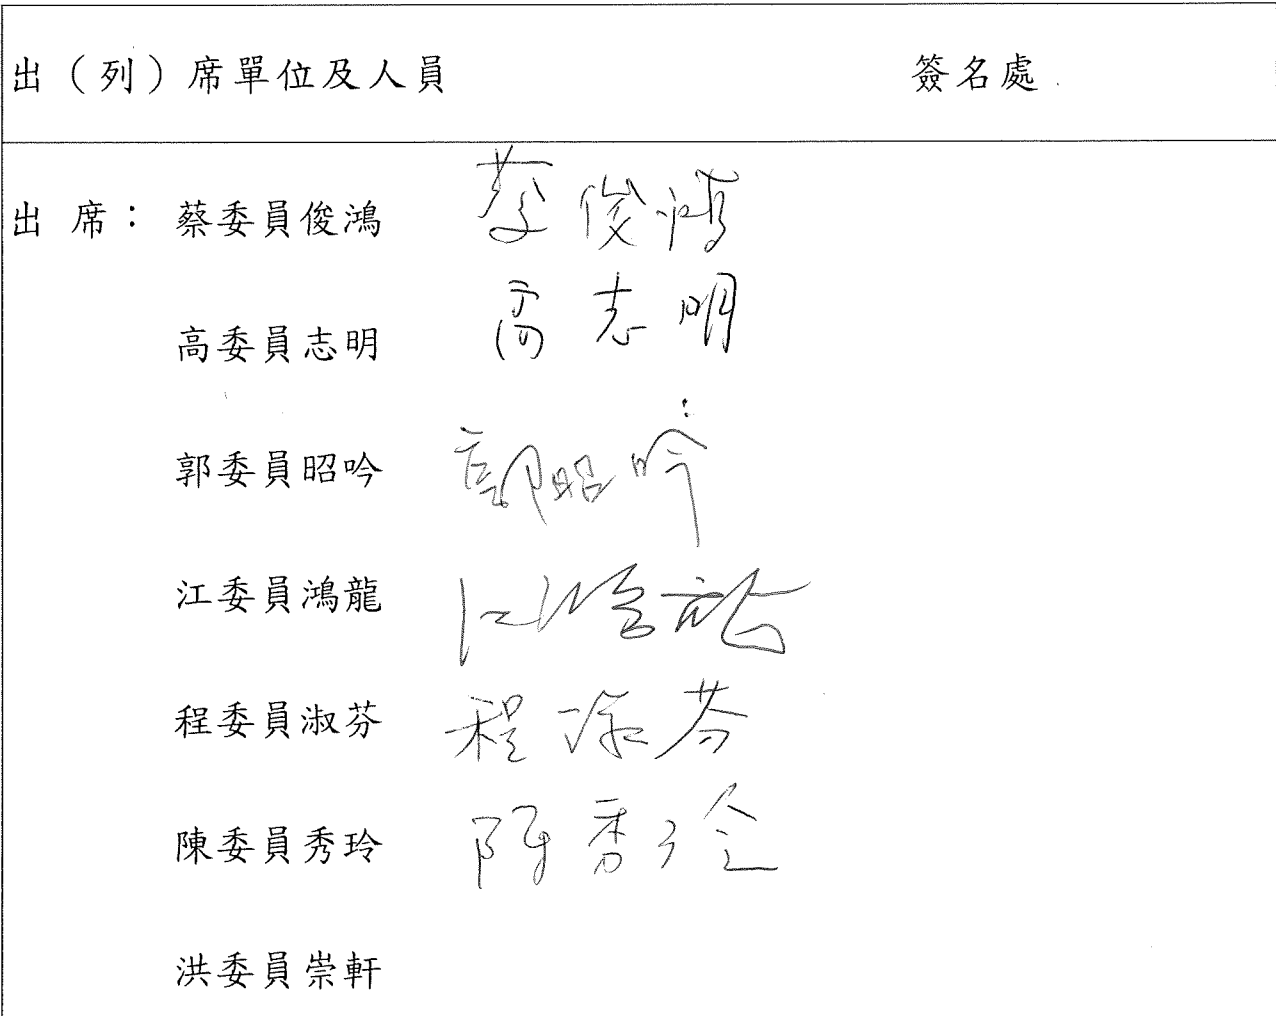 出（列）席單位及人員 簽名處
出席：蔡委員俊鴻 蔡俊鴻
高委員志明 高志明
郭委員昭吟 郭昭吟
江委員鴻龍 江鴻龍
程委員淑芬 程淑芬
陳委員秀玲 陳秀玲
洪委員崇軒